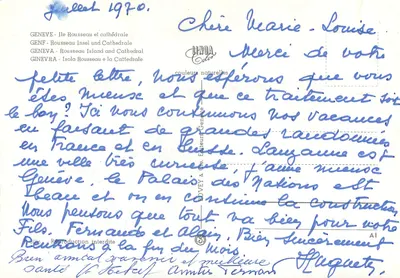 Juillet 1970.
GENÈVE - Ile Rousseau et cathédrale
GENF - Rousseau Insel und Cathedrale
GENEVA - Rousseau Island and Cathedral
GINEVRA - Isola Rousseau e la Cathedrale
couleurs naturelles
Chère Marie-Louise.
Merci de votre
petite lettre, nous espérons que vous
êtes mieux et que ce traitement soit
le bon? Ici nous continuons nos vacances
en faisant de grandes randonnées
en France et en Suisse. Lauzanne est
une ville très curieuse, j'aime mieux
Genève, le Palais des Nations est
beau et on en continue la construction
Nous pensons que tout va bien pour votre
Fils. Fernando et Alain. Bien sincèrement
Rentrons à la fin du mois.
Huguette
Bien amical souvenir et meilleure
santé
A1